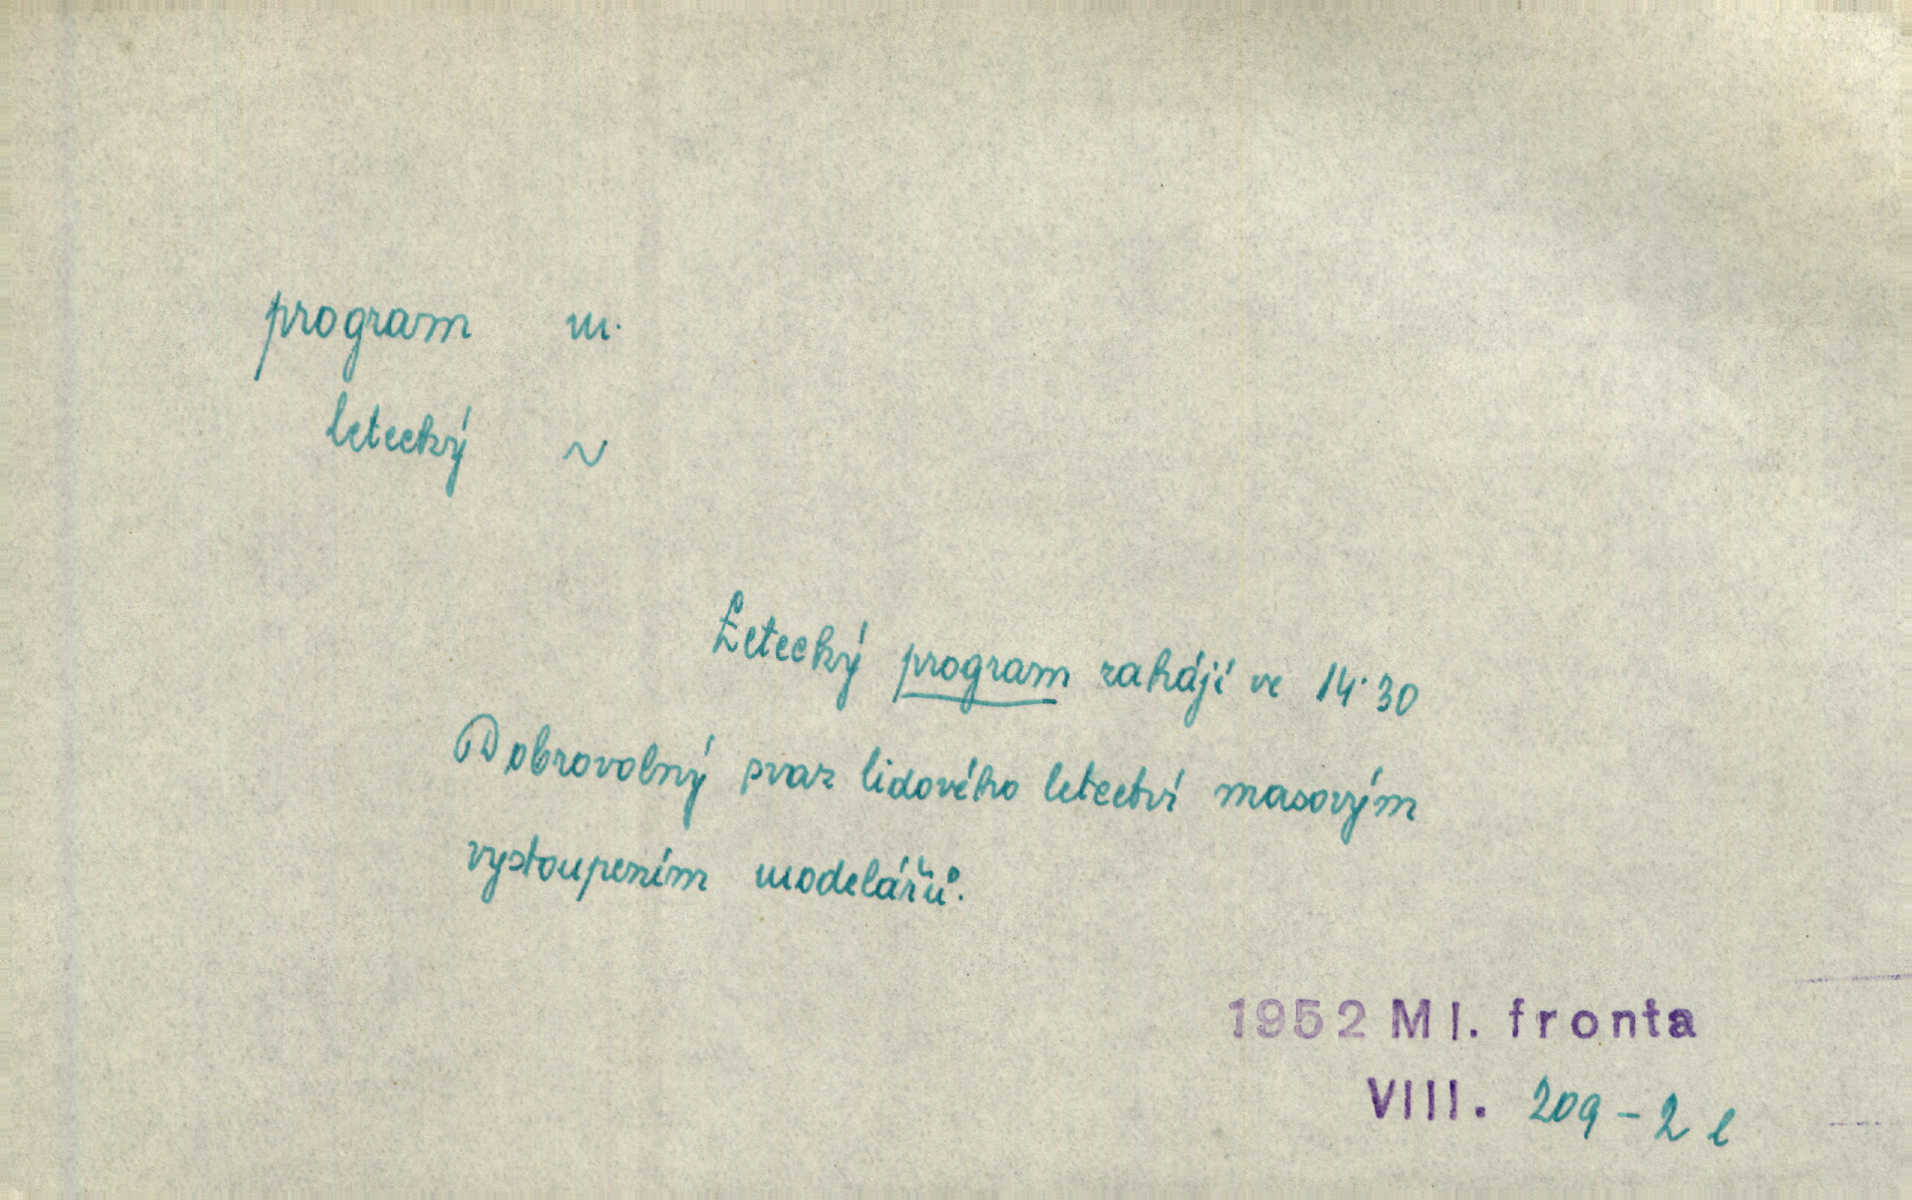 program m.
letecký ~
Letecký program zahájí ve 14·30
Dobrovolný svaz lidového letectví masovým
vystoupením modelářů.
1952 Ml. fronta
VIII. 209 – 2 l